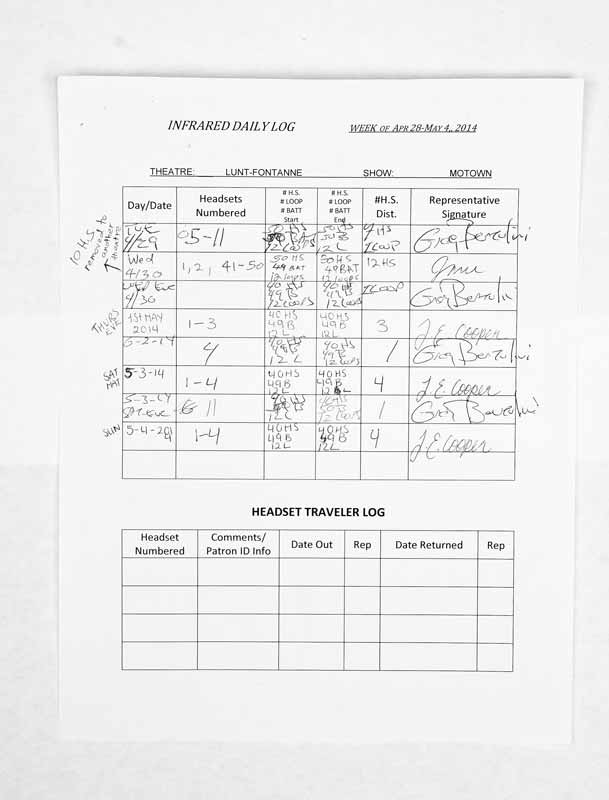 INFRARED DAILY LOG WEEK OF APR 28-MAY 4, 2014
THEATRE: LUNT-FONTANNE SHOW: MOTOWN
10 H.S. removed to another theatre
Day/Date Headsets Numbered # H.S. # LOOP # BATT Start # H.S. # LOOP # BATT End #H.S. Dist. Representative Signature
TUE 4/29 05-11 50 HS 12 L 1 LOOP Greg Bertolini
Wed 4/30 1, 2, 41-50 50 HS 49 BAT 12 loops 50 HS 49 BAT 12 loops 12 HS
Wed Eve 4/30 40 HS 49 B 12 Loops 40 HS 49 B 12 Loops 1 Loop Greg Bertolini
THURS EVE 1ST MAY 2014 1-3 40 HS 49 B 12 L 40 HS 49 B 12 L 3 J.E. Cooper
5-2-14 4 40 HS 49 B 12 L 40 HS 49 B 12 Loops 1 Greg Bertolini
SAT MAT 5-3-14 1-4 40 HS 49 B 12 L 40 HS 49 B 12 L 4 J.E. Cooper
5-3-14 SAT. Eve 11 12 L 40 HS 12 Loops 1 Greg Bertolini
SUN 5-4-2014 1-4 40 HS 49 B 12 L 40 HS 49 B 12 L 4 J.E. Cooper
HEADSET TRAVELER LOG
Headset Numbered Comments/ Patron ID Info Date Out Rep Date Returned Rep